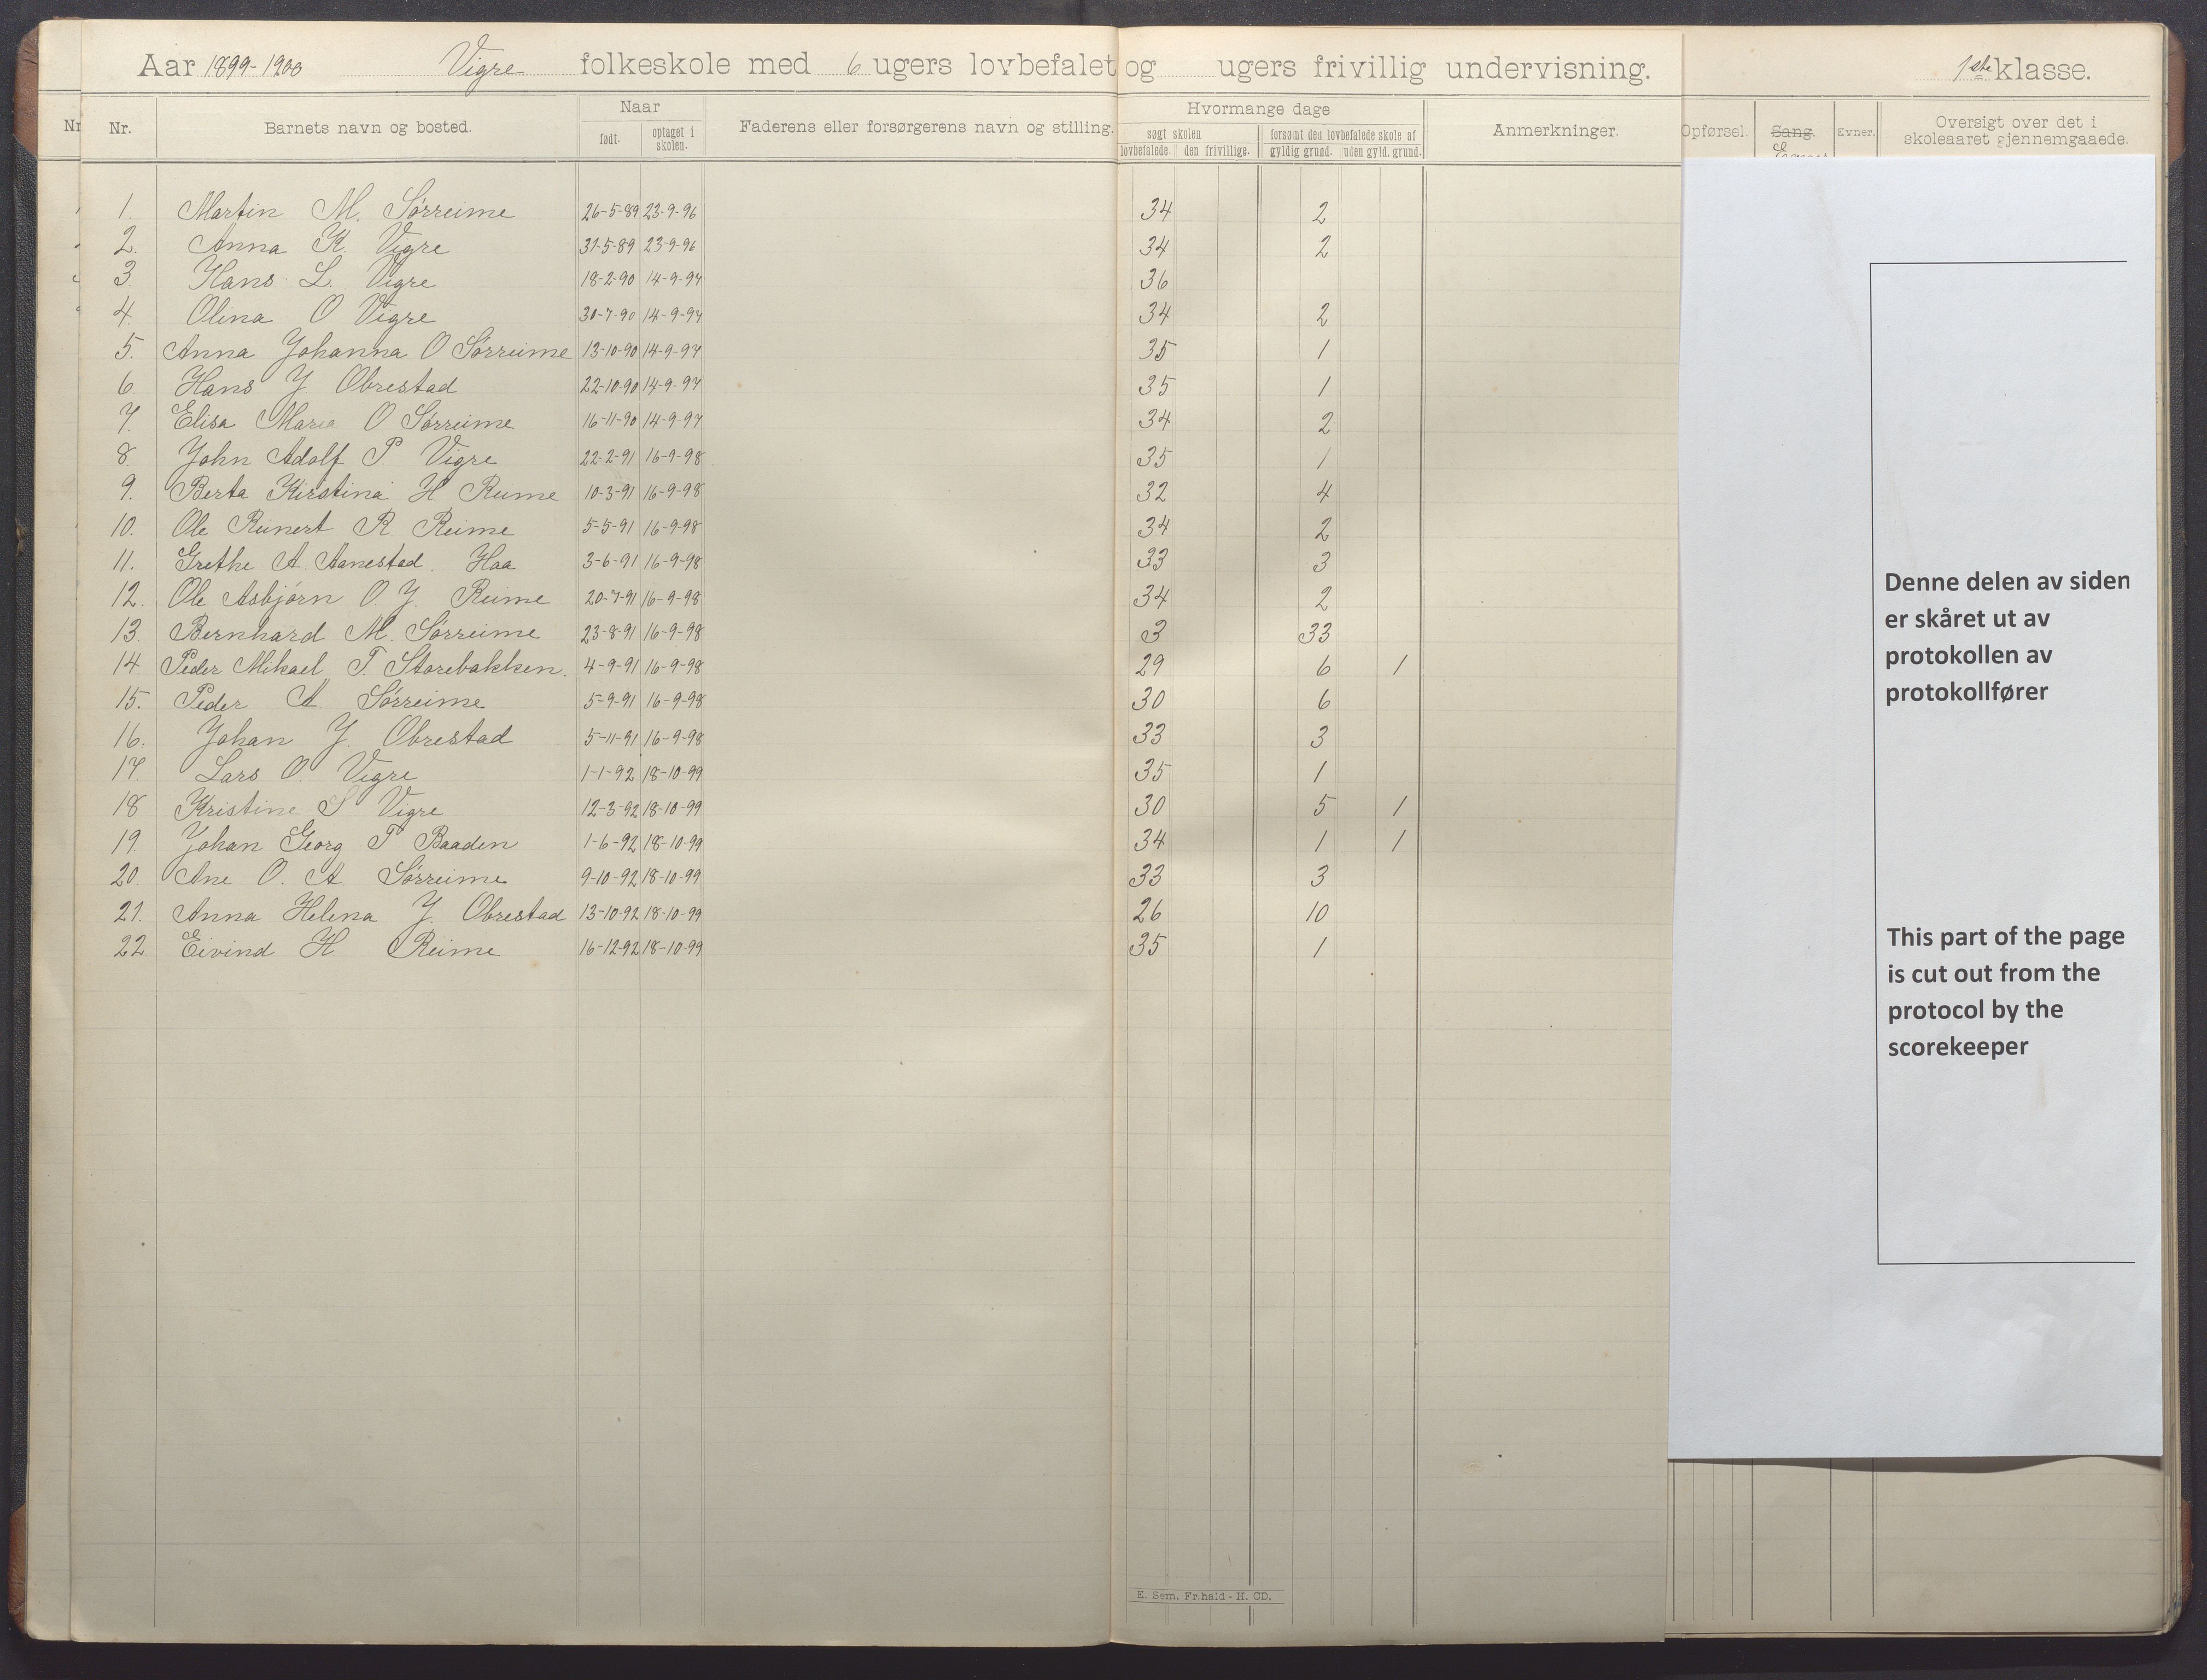 Aar 1899-1900 Vigre folkeskole med 6 ugers lovbefalet og ugers frivillig undervisning. 1ste klasse.
Nr Nr. Barnets navn og bosted. Naar Faderens eller forsørgerens navn og stilling. Hvormange dage Anmerkninger. Opførsel. Sang. Evner. Oversigt over det i skoleaaret gjennemgaaede.
født. optaget i skolen. søgt skolen forsømt den lovbefalede skole af
lovbefalede. den frivillige. gyldig grund. uden gyld. grund.
1. Martin M. Sørreime 26-5-89 23-9-96 34 2
2. Anna K. Vigre 31-5-89 23-9-96 34 2
3. Hans L. Vigre 18-2-90 14-9-97 36
4. Olina O Vigre 30-7-90 14-9-97 34 2
5. Anna Johanna O Sørreime 13-10-90 14-9-97 35 1
6 Hans J Obrestad 22-10-90 14-9-97 35 1
7. Elisa Maria O Sørreime 16-11-90 14-9-97 34 2
8. John Adolf P. Vigre 22-2-91 16-9-98 35 1
9. Berta Kirstina H Reime 10-3-91 16-9-98 32 4
10. Ole Reinert R Reime 5-5-91 16-9-98 34 2
11. Grethe A. Aanestad. Haa 3-6-91 16-9-98 33 3
12. Ole Asbjørn O. J. Reime 20-7-91 16-9-98 34 2
13. Bernhard M. Sørreime 23-8-91 16-9-98 3 33
14. Peder Mikael T. Storebakken. 4-9-91 16-9-98 29 6 1
15. Peder A. Sørreime 5-9-91 16-9-98 30 6
16. Johan J. Obrestad 5-11-91 16-9-98 33 3
17. Lars O. Vigre 1-1-92 18-10-99 35 1
18 Kristine S Vigre 12-3-92 18-10-99 30 5 1
19. Johan Georg P Baaden 1-6-92 18-10-99 34 1 1
20. Ane O. A Sørreime 9-10-92 18-10-99 33 3
21. Anna Helena J. Obrestad 13-10-92 18-10-99 26 10
22 Eivind H Reime 16-12-92 18-10-99 35 1
Denne delen av siden
er skåret ut av
protokollen av
protokollfører
This part of the page
is cut out from the
protocol by the
scorekeeper
E. Sem. Fr.hald - H. CD.